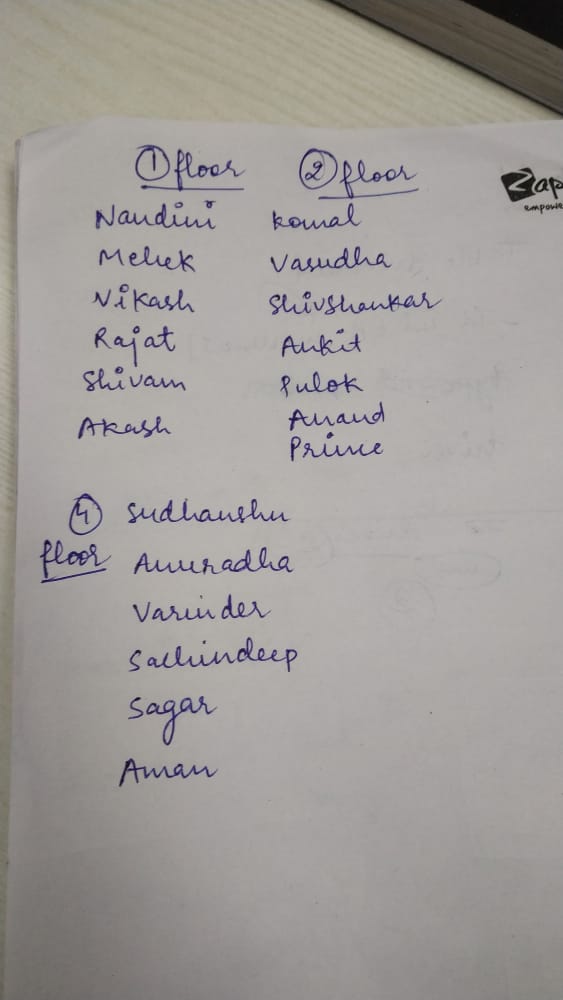 ① floor
Nandini
Mehek
Nikash
Rajat
Shivam
Akash
② floor
Komal
Vasudha
Shivshankar
Ankit
Pulok
Anand
Prince
④ floor
Sudhanshu
Anuradha
Varinder
Sachindeep
Sagar
Aman
Zap
empowe